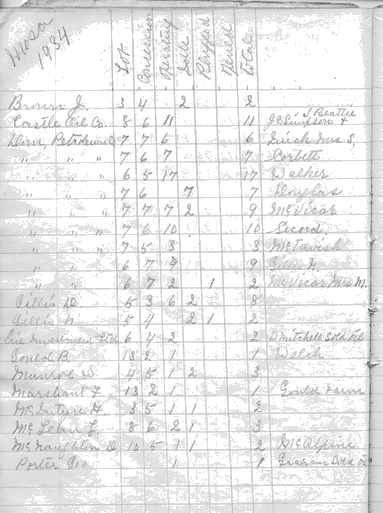 Mosa
1934
Lot Concession Operating Idle Plugged Total
Brown J. 3 4 2 2
Castle Oil Co. 8 6 11 11 J.C. Simpson & J. Beattie
Dom. Petroleum 7 7 6 6 Mrs. S.
" " " 7 6 7 7 Corbett
" " " 6 5 17 17 Walker
" " " 7 6 7 7 Douglas
" " " 7 7 7 2 9 McVicar
" " " 7 6 10 10 Secord
" " " 7 5 3 3 McTavish
" " " 6 7 9 9
" " " 6 7 2 1 2 McVicar Mrs. M.
Gillis D. 5 3 6 2 8
Gillis N. 5 4 2 1 2
Erie Investment 6 4 2 2 Mitchell Sold Oil
Gould B. 13 2 1 1
Munroe W. 4 5 1 2 3
Marchant F. 13 2 1 1 Gould Farm
McIntyre H. 3 5 1 1 2
McLean L. 8 6 2 1 3
McNaughton D. 10 5 1 1 2 McAlpine
Porter Geo. 1 1 Graham Sold